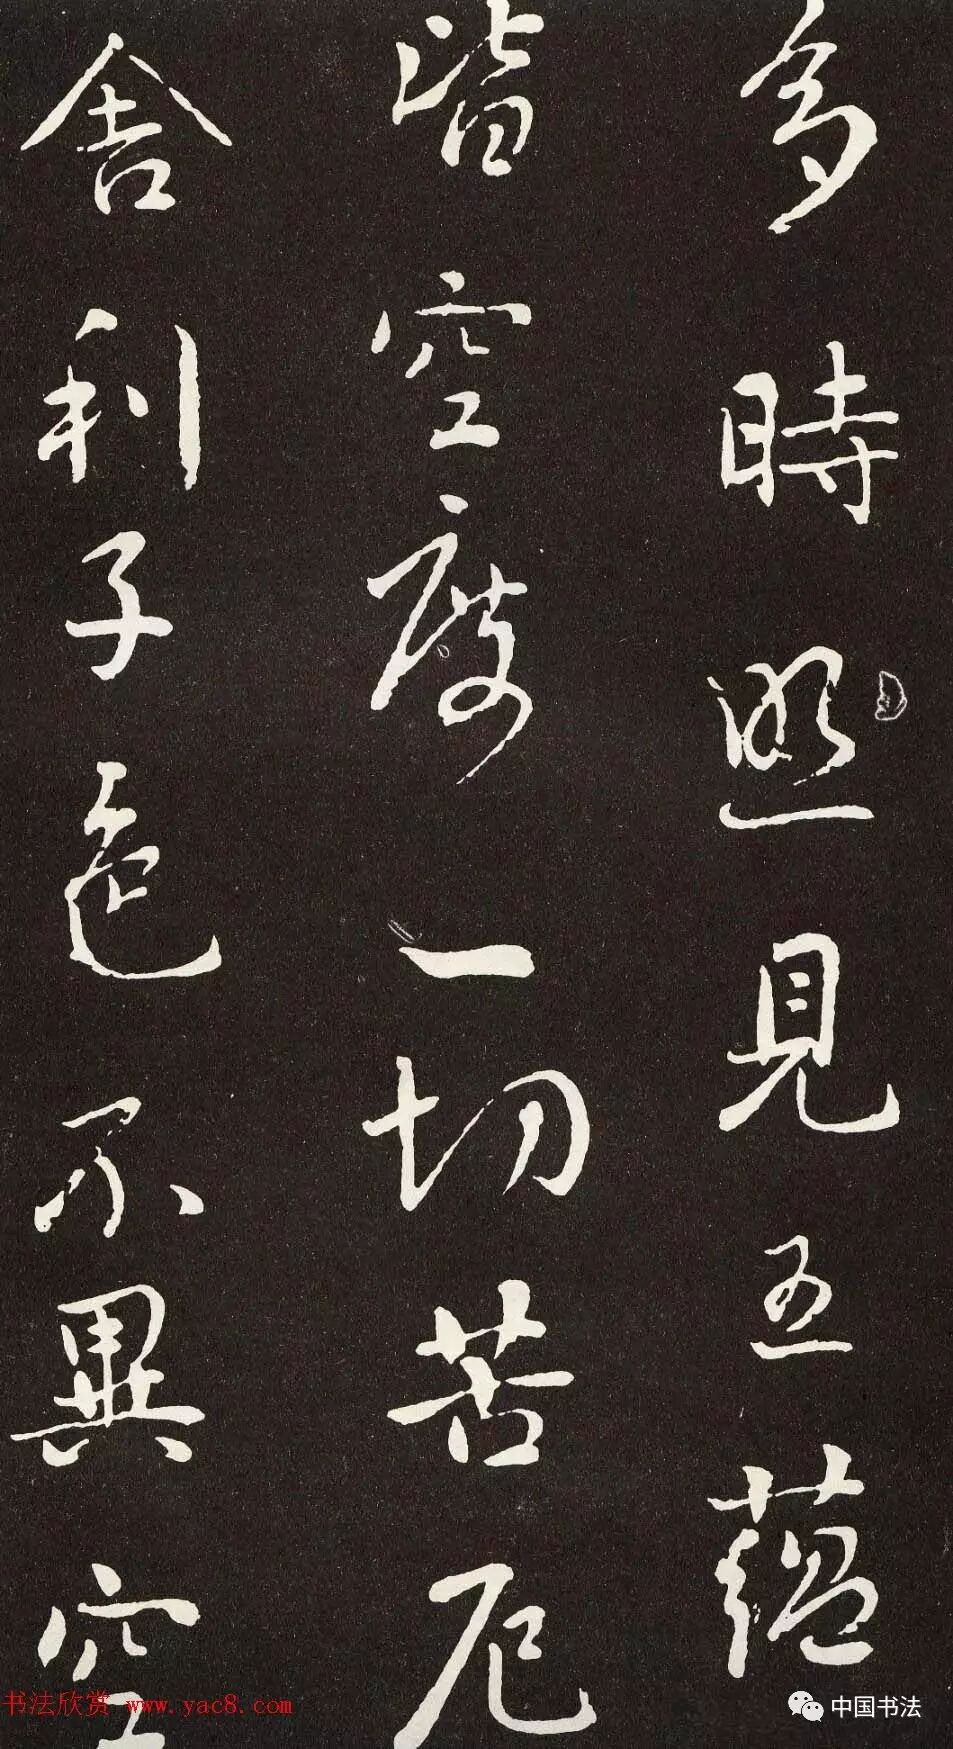 多時照見五蘊
皆空度一切苦厄
舍利子色不異空
书法欣赏 www.yac8.com
中国书法